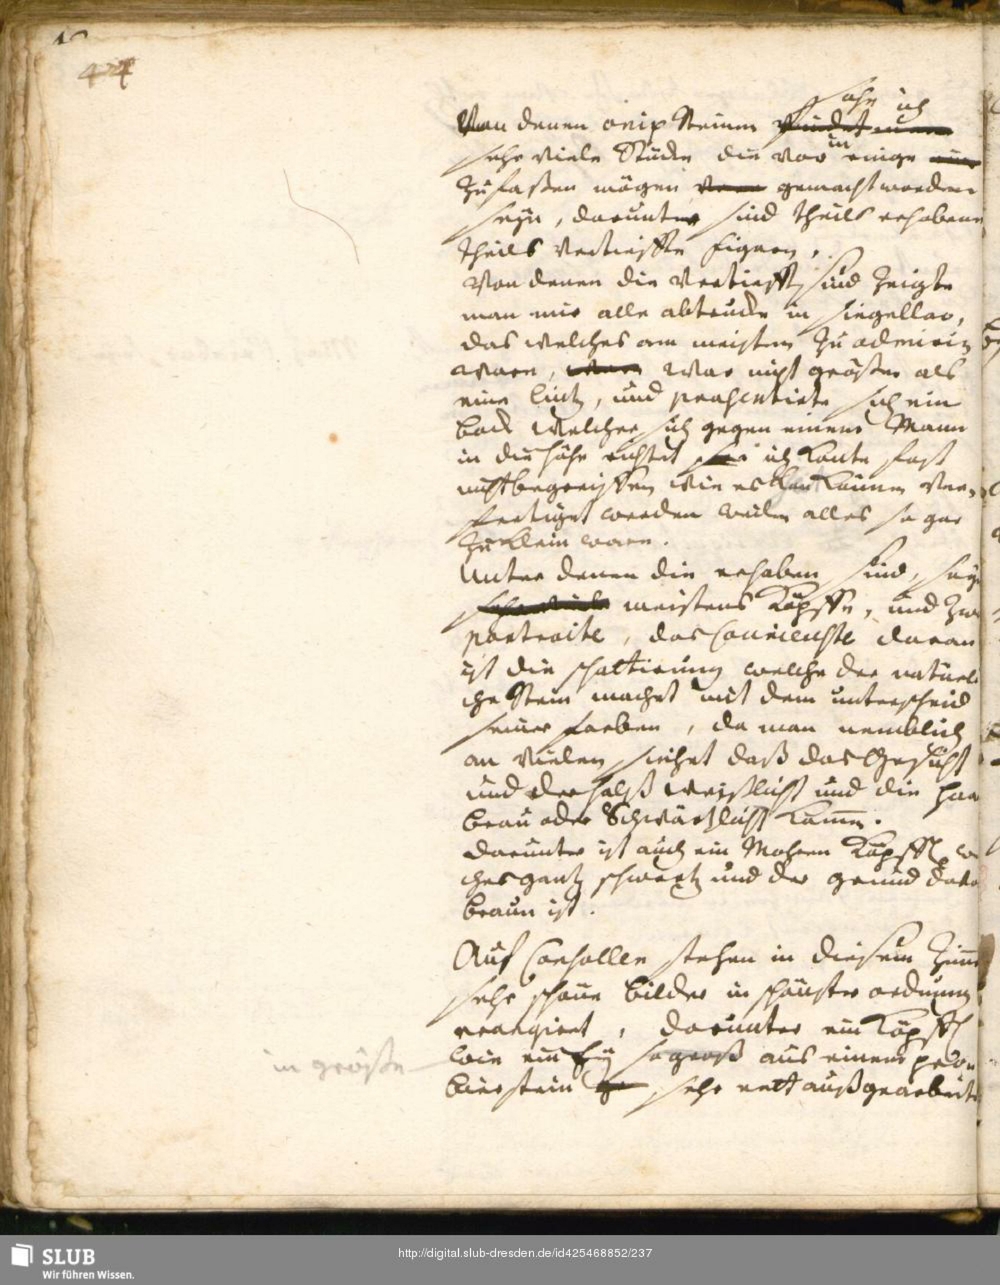 424
sahe ich
Von denen onix Steinen findet man
sehr viele Stücke die vor in einige ein
zufaßen mögen gemacht worden
seyn, darunter sind theils erhabene
theils vertieffte figuren,
Von denen die vertiefft sind zeigte
man mir alle abtrucke in siegellac,
das welches am meisten zu admirir
waar, war nicht größer als
eine linß, und praesentirte sich ein
bock welcher sich gegen einem Mann
in die höhe richtet ich konte fast
nicht begreiffen wie es kan können ver-
fertiget werden weilen alles so gar
zu klein waar.
Unter denen die erhaben sind, seyn
sehr viele meistens köpffe, und zwar
portraite, das Courieuste daran
ist die schattirung welche der natürli
che Stein machet mit dem unterscheid
seiner farben, da man nemblich
an vielen siehet daß das Gesicht
und der halß weißlicht und die haar
braun oder Schwärtzlicht kamen.
darunter ist auch ein Mohren köpffl we
ches gantz schwartz und der grund
braun ist.
Auf Consollen stehen in diesem Zimmer
sehr schöne bilder in schönster ordnung
rrangiret, darunter ein köpffl
in größe
wie ein Ey so groß aus einem
stein sehr nett außgearbeit
SLUB
Wir führen Wissen.
http://digital.slub-dresden.de/id425468852/237